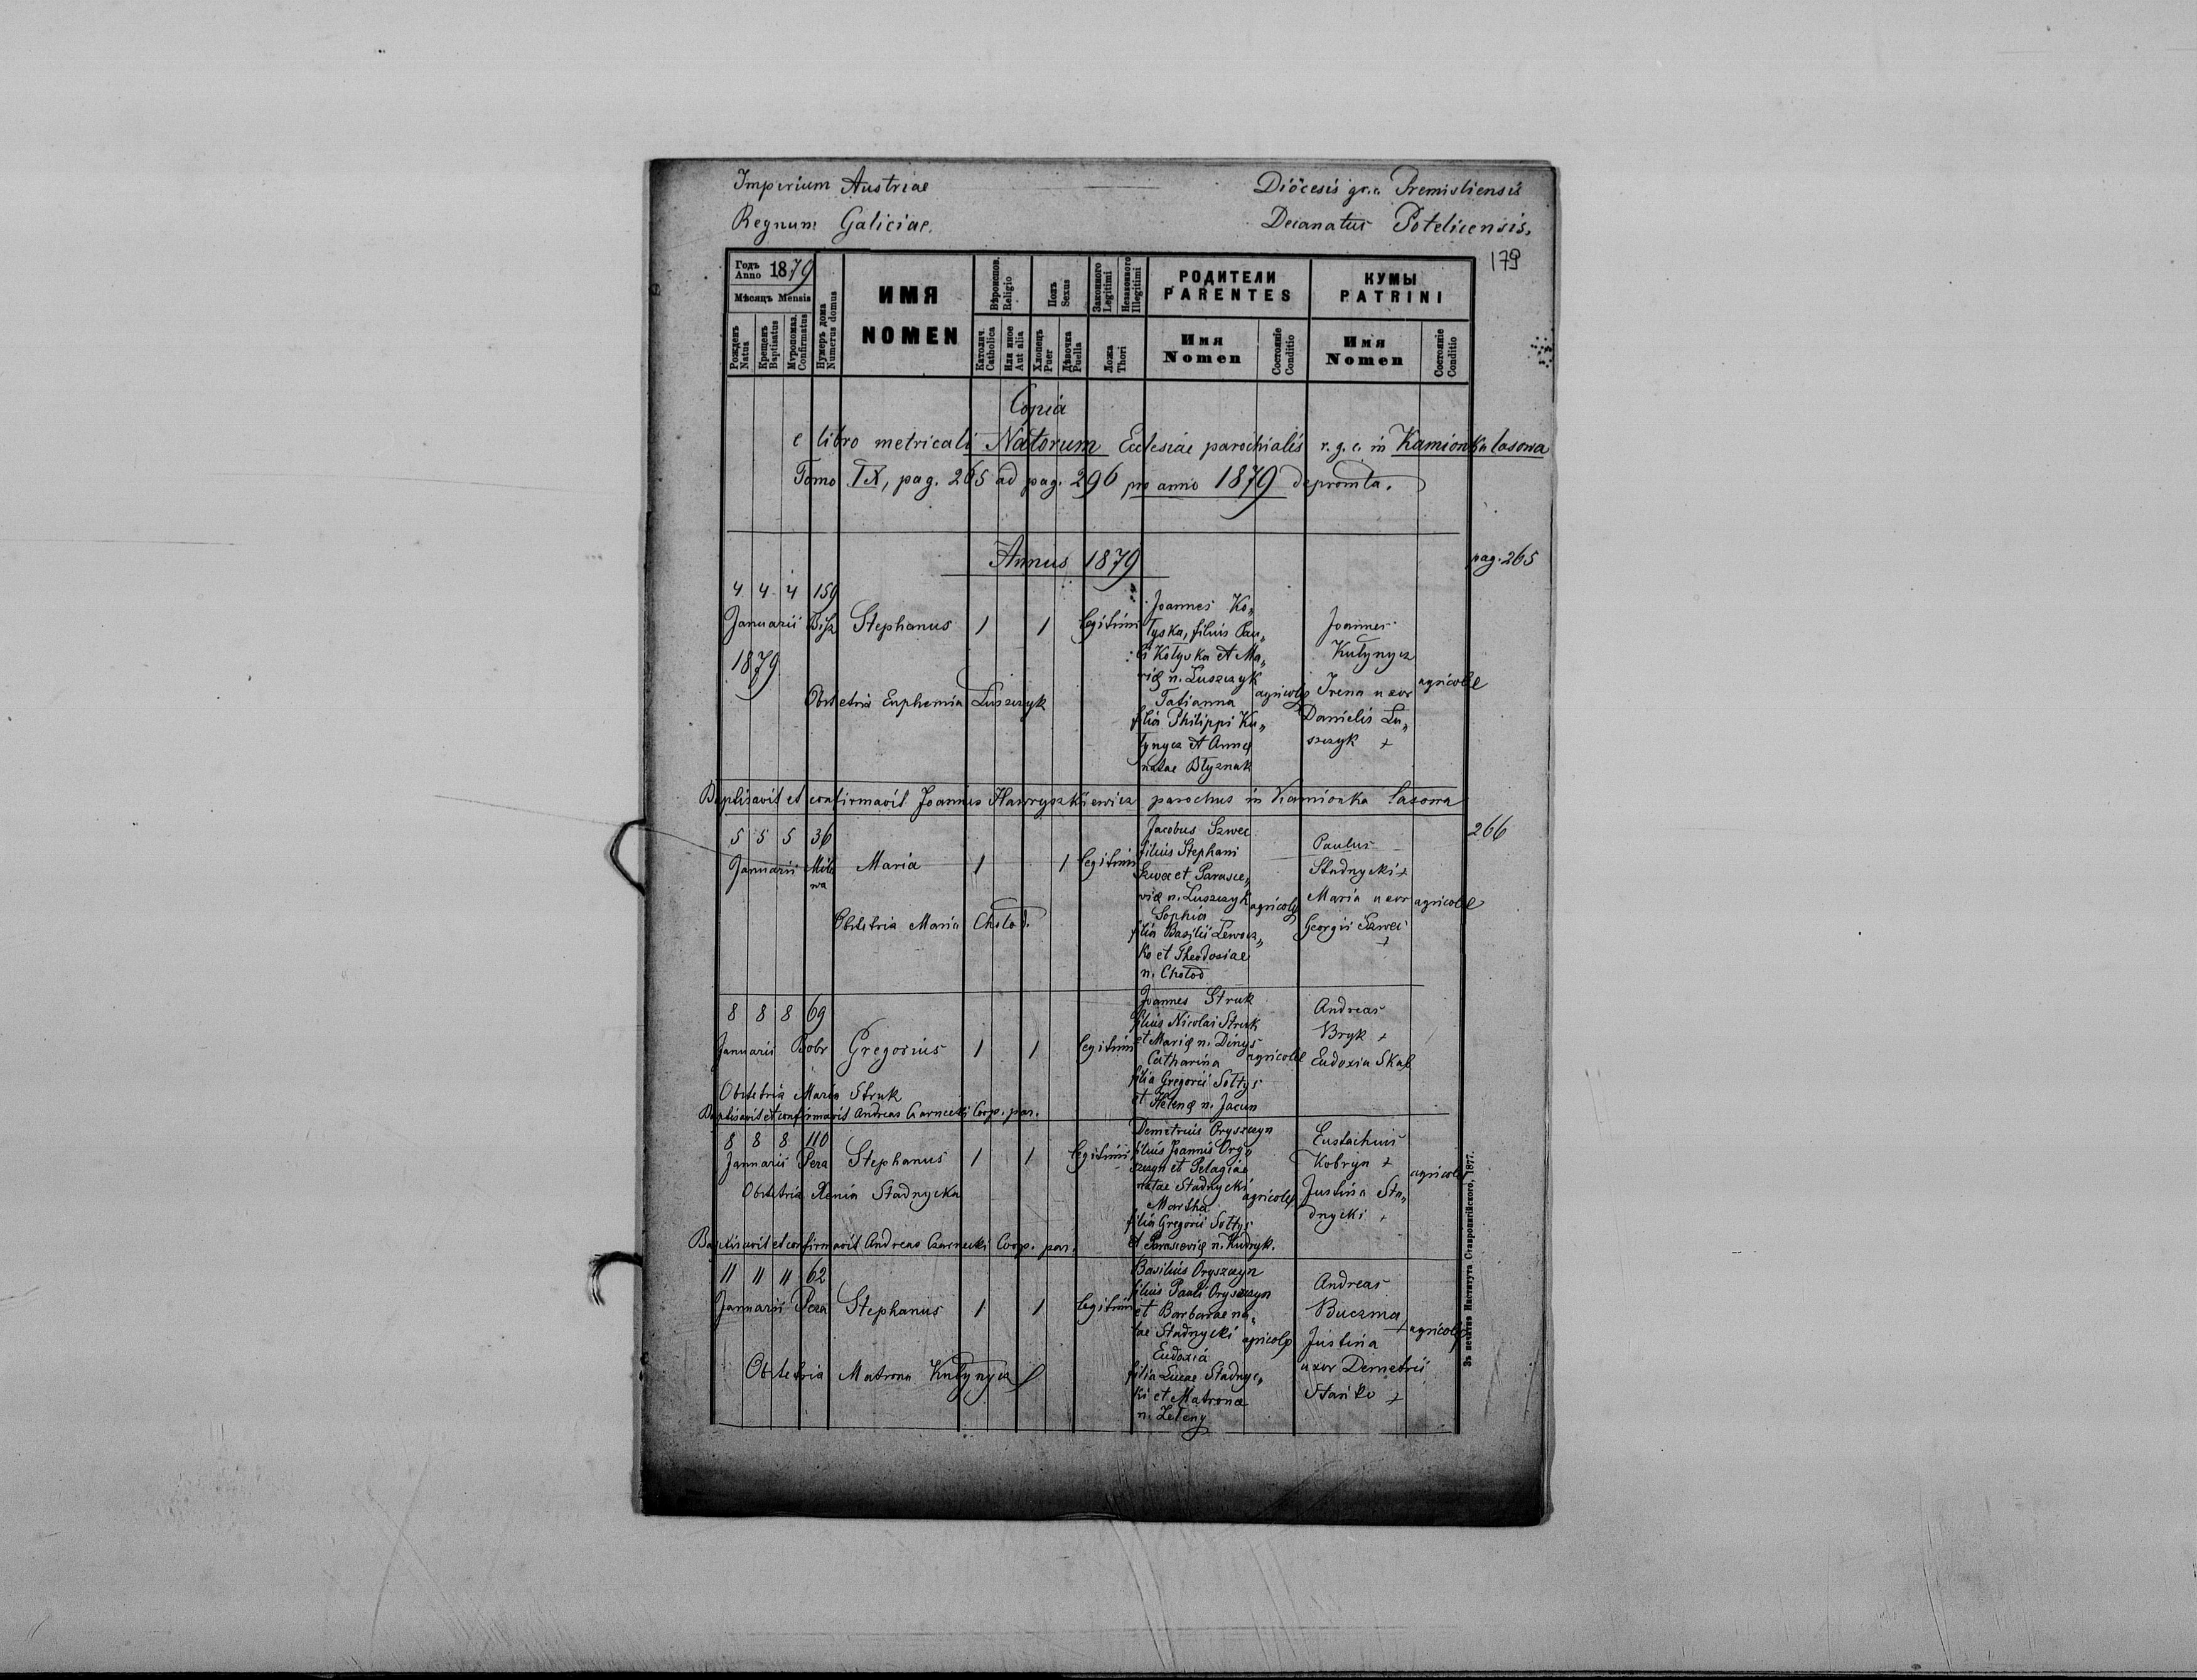 Imperium Austriae
Regnum Galiciae.
Diöcesis gr.c. Premisliensis
Decanatus Potelicensis.
179
Годъ Anno 1879
Мѣсяцъ Mensis
Рожденъ Natus
Крещенъ Baptisatus
Мѵропомаз. Confirmatus
Нумеръ дома Numerus domus
ИМЯ
NOMEN
Вѣроиспов. Religio
Католич. Catholica
Или иное Aut alia
Полъ Sexus
Хлопецъ Puer
Дѣвочка Puella
Законного Legitimi
Незаконного Illegitimi
Ложа Thori
РОДИТЕЛИ
PARENTES
Имя Nomen
Состояніе Conditio
КУМЫ
PATRINI
Имя Nomen
Состояніе Conditio
Copia
e libro metricali Natorum Ecclesiae parochialis r. g. c. in Kamionka lasowa
Tomo IX, pag. 265 ad pag. 296 pro anno 1879 depromta.
Annus 1879
pag. 265
4 4 4 159
Januarii
1879
Stephanus 1 1 legitimi
Joannes Ko„
łyska, filius Pau„
li Kołyska et Ma„
riæ n. Luszczyk
Tatianna
filia Philippi Ku„
łynycz et Annæ
natae Błyznak
agricolæ
Joannes
Kułynycz
Irena uxor
Danielis Lu„
szczyk +
agricolæ
Obstetrix Euphemia Luszczyk
Baptisavit et confirmavit Joannes Hawryszkiewicz parochus in Kamionka lasowa
266
5 5 5 36
Januarii
Maria 1 1 legitimi
Jacobus Szwec
filius Stephani
Szwec et Parasce„
viæ n. Luszczyk
Sophia
filia Basilii Lewocz„
ko et Theodosiae
n. Chołod
agricolæ
Paulus
Stadnycki +
Maria uxor
Georgii Szwec
+
agricolæ
Obstetrix Maria Chołod.
8 8 8 69
Januarii Bobr Gregorius 1 1 legitimi
Joannes Struk
filius Nicolai Struk
et Mariæ n. Dinys
Catharina
filia Gregorii Sołtys
et Helenæ n. Jacun
agricolæ
Andreas
Bryk +
Eudoxia Skab
Obstetrix Maria Struk
Baptisavit et confirmavit Andreas Czarnecki Coop. par.
8 8 8 110
Januarii Pera Stephanus 1 1 legitimi
Demetrius Oryszczyn
filius Joannis Ory„
szczyn et Pelagiae
natae Stadnycki
Martha
filia Gregorii Sołtys
et Parasceviæ n. Kudryk.
agricolæ
Eustachius
Kobryn +
Justina Sta„
dnycki +
agricolæ
Obstetrix Xenia Stadnycka
Baptisavit et confirmavit Andreas Czarnecki Coop. par.
11 11 11 62
Januarii Pera Stephanus 1 1 legitimi
Basilius Oryszczyn
filius Pauli Oryszczyn
et Barbarae na„
tae Stadnycki
Eudoxia
filia Lucae Stadnyc„
ki et Matronæ
n. Zełeny
agricolæ
Andreas
Buczma +
Justina
uxor Demetrii
Stańko +
agricolæ
Obstetrix Matrona Kułynycz
Зъ печатнѣ Института Ставропигійского, 1877.